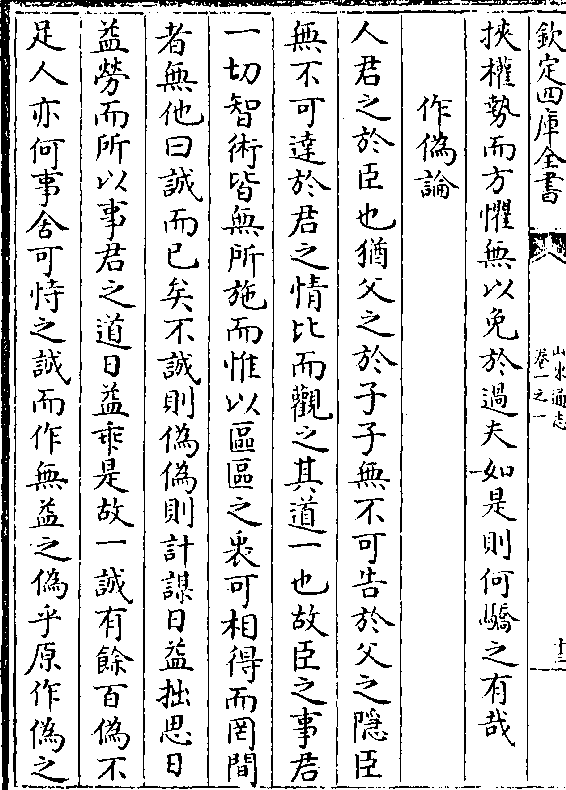 欽定四庫全書
山東通志
卷一之一
十三
挾權勢而方懼無以免於過夫如是則何驕之有哉
作偽論
人君之於臣也猶父之於子子無不可告於父之隱臣
無不可達於君之情比而觀之其道一也故臣之事君
一切智術皆無所施而惟以區區之衷可相得而罔間
者無他曰誠而已矣不誠則偽偽則計謀日益拙思日
益勞而所以事君之道日益乖是故一誠有餘百偽不
足人亦何事舍可恃之誠而作無益之偽乎原作偽之